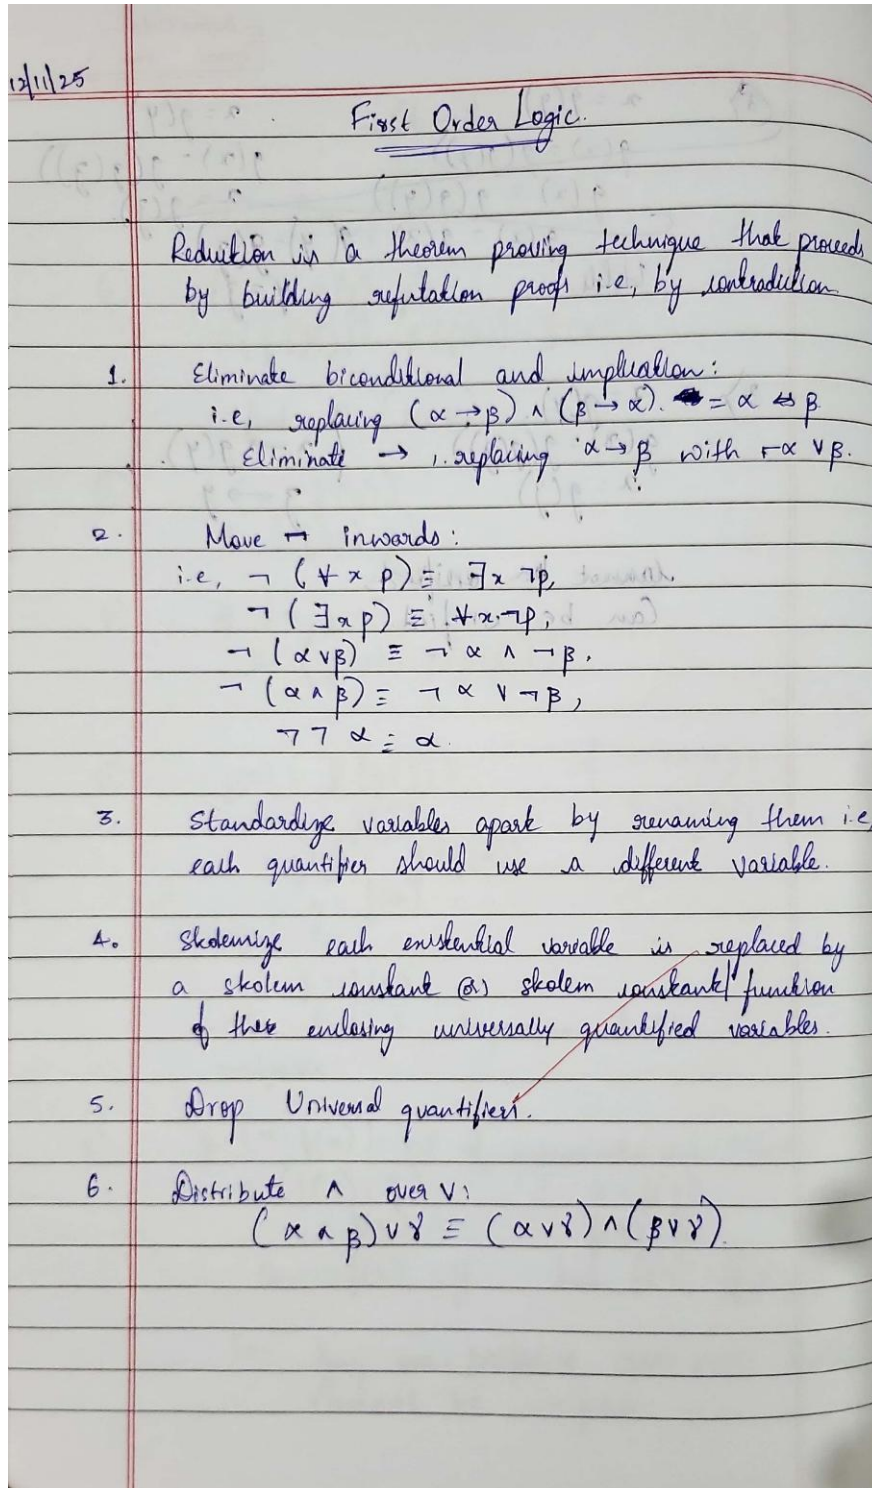 12/11/25
First Order Logic.
Reduction is a theorem proving technique that proceeds
by building refutation proofs i.e, by contradiction.
1. Eliminate biconditional and implication:
i.e, replacing (α → β) ∧ (β → α). = α ⇔ β
Eliminate → , replacing α → β with ¬α ∨ β.
2. Move ¬ inwards:
i.e, ¬ (∀ x p) ≡ ∃x ¬p,
¬ (∃x p) ≡ ∀x ¬p,
¬ (α ∨ β) ≡ ¬ α ∧ ¬ β,
¬ (α ∧ β) ≡ ¬ α ∨ ¬ β,
¬ ¬ α ≡ α.
3. Standardize variables apart by renaming them i.e,
each quantifier should use a different variable.
4. Skolemize each existential variable is replaced by
a skolem constant (or) skolem constant/ function
of the enclosing universally quantified variables.
5. Drop Universal quantifiers.
6. Distribute ∧ over ∨:
(α ∧ β) ∨ γ ≡ (α ∨ γ) ∧ (β ∨ γ).